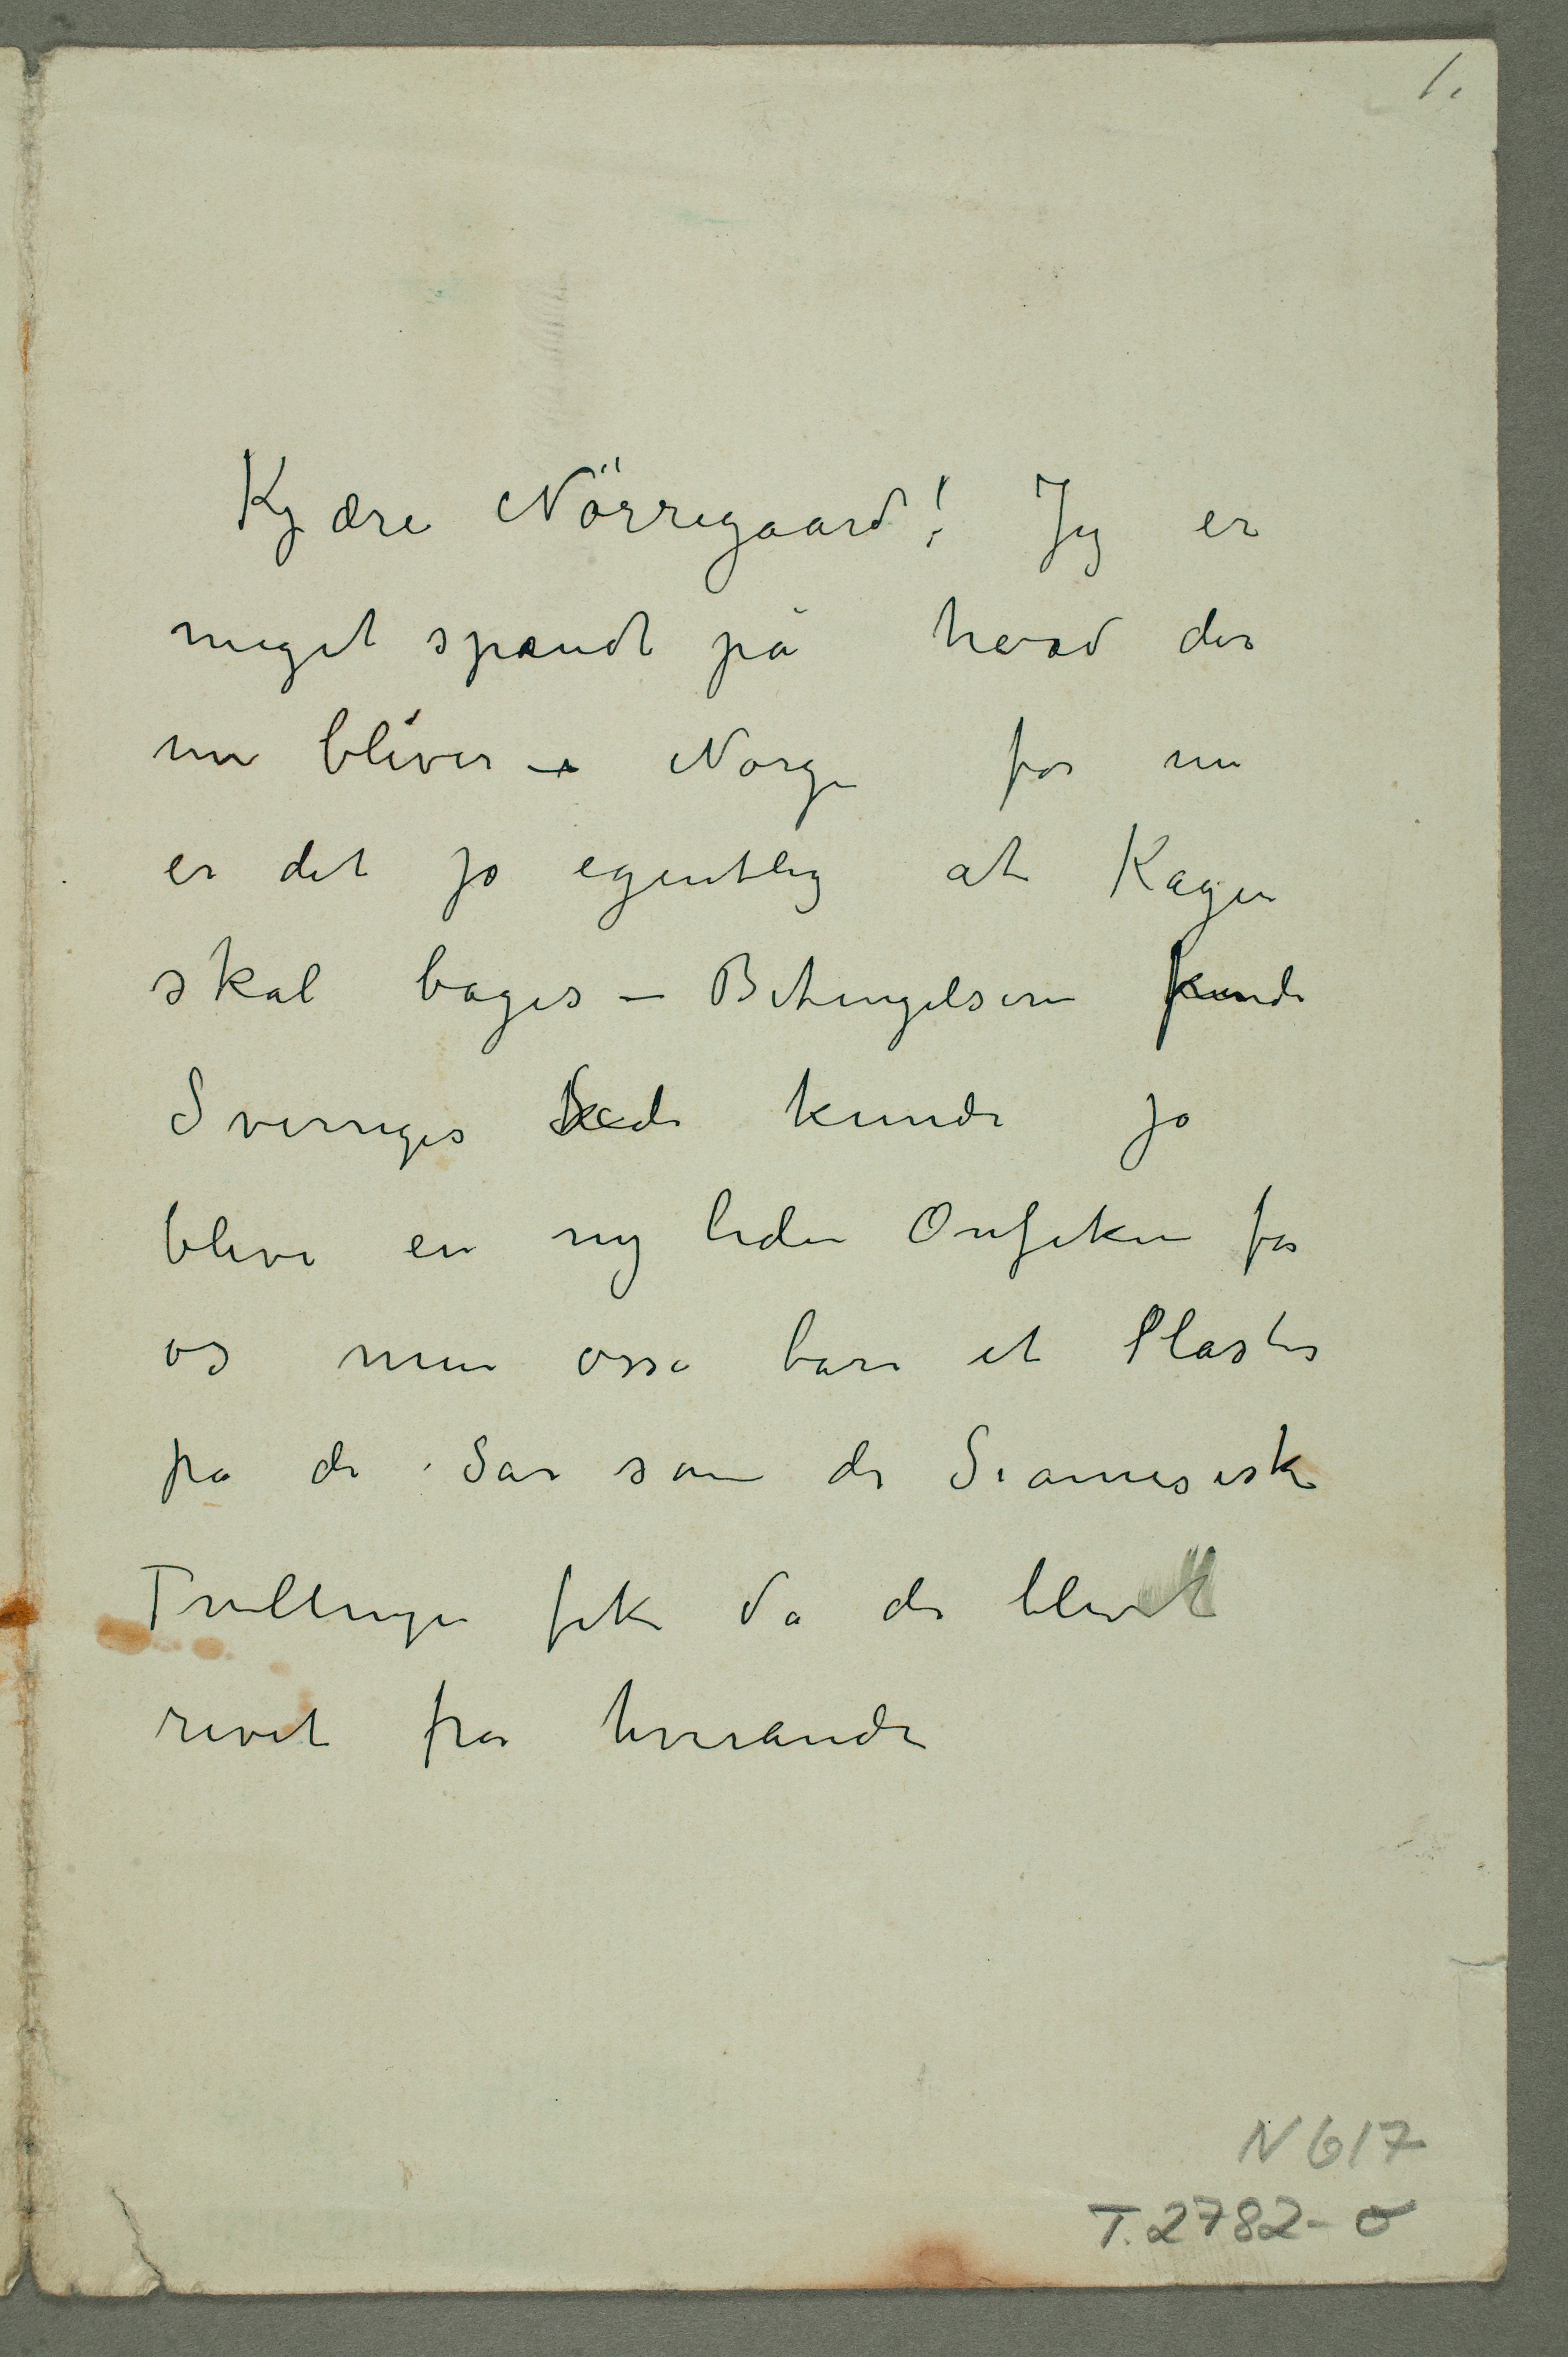 1.
Kjære Nörregaard! Jeg er
meget spændt på hvad der
nu bliver – Norge for nu
er det jo egentlig at Kagen
skal bages – Betingelserne
Sverriges kunde jo
blive en ny liden Örefiken for
os men osså bare et Plaster
på de Sår som de Siamesiske
Tvillinger fik da de blevet
revet fra hverandre
N 617
T.2782-σ